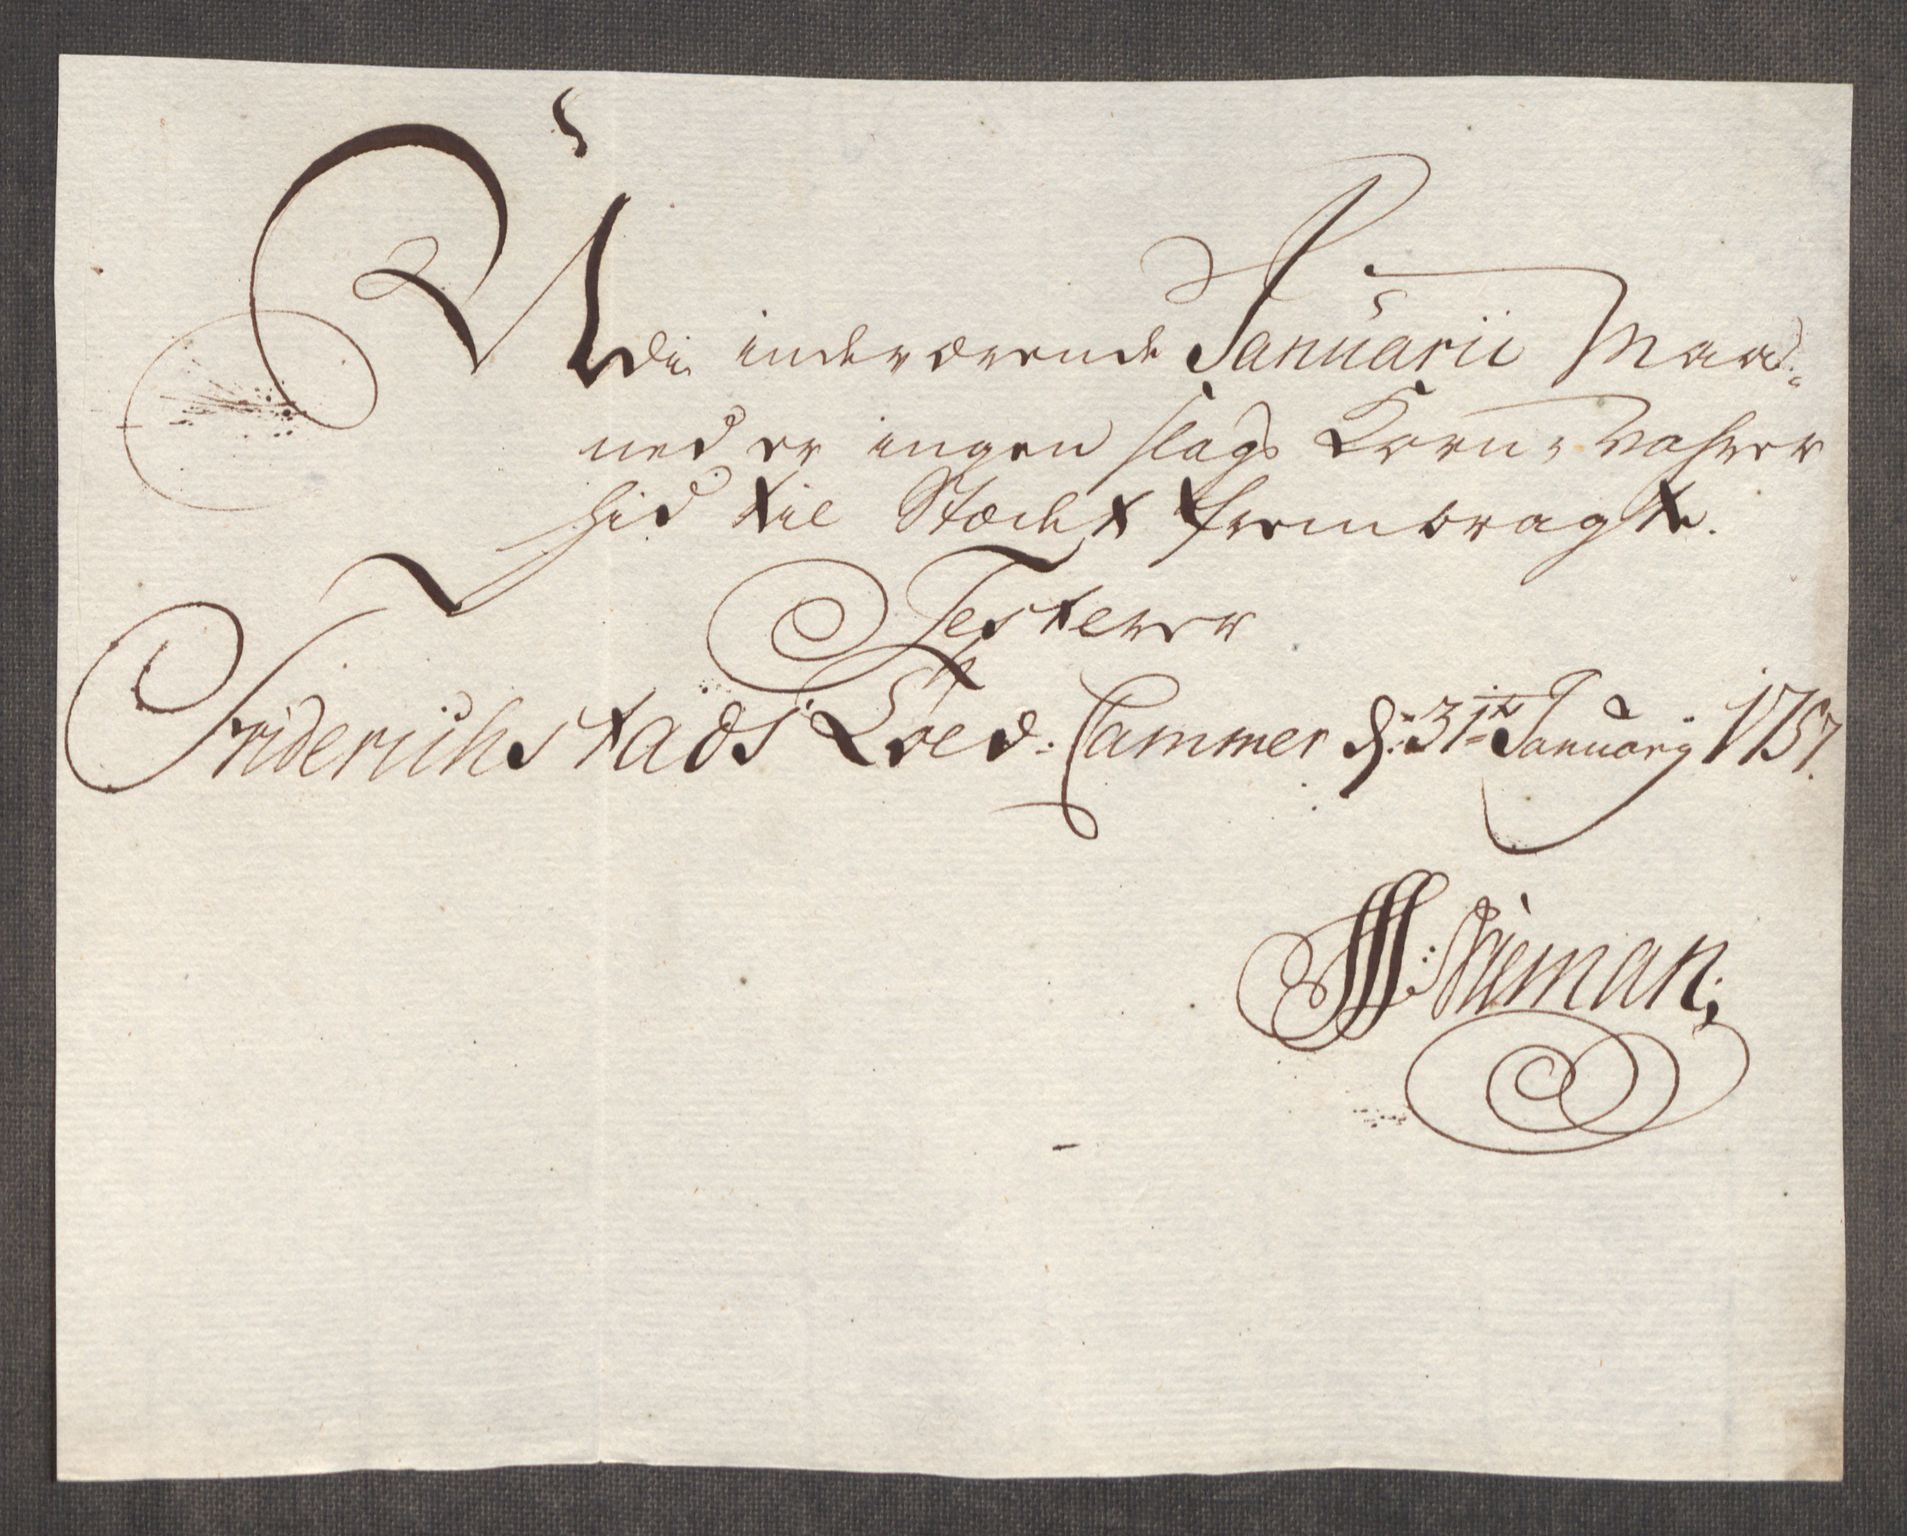 Udi indeværende Januarii Maa-
ned er ingen slags Korn-Vahrer
hid til Stædet frembragte.
Testerer
Friderichstads Toed: Cammer d: 31te January 1757.